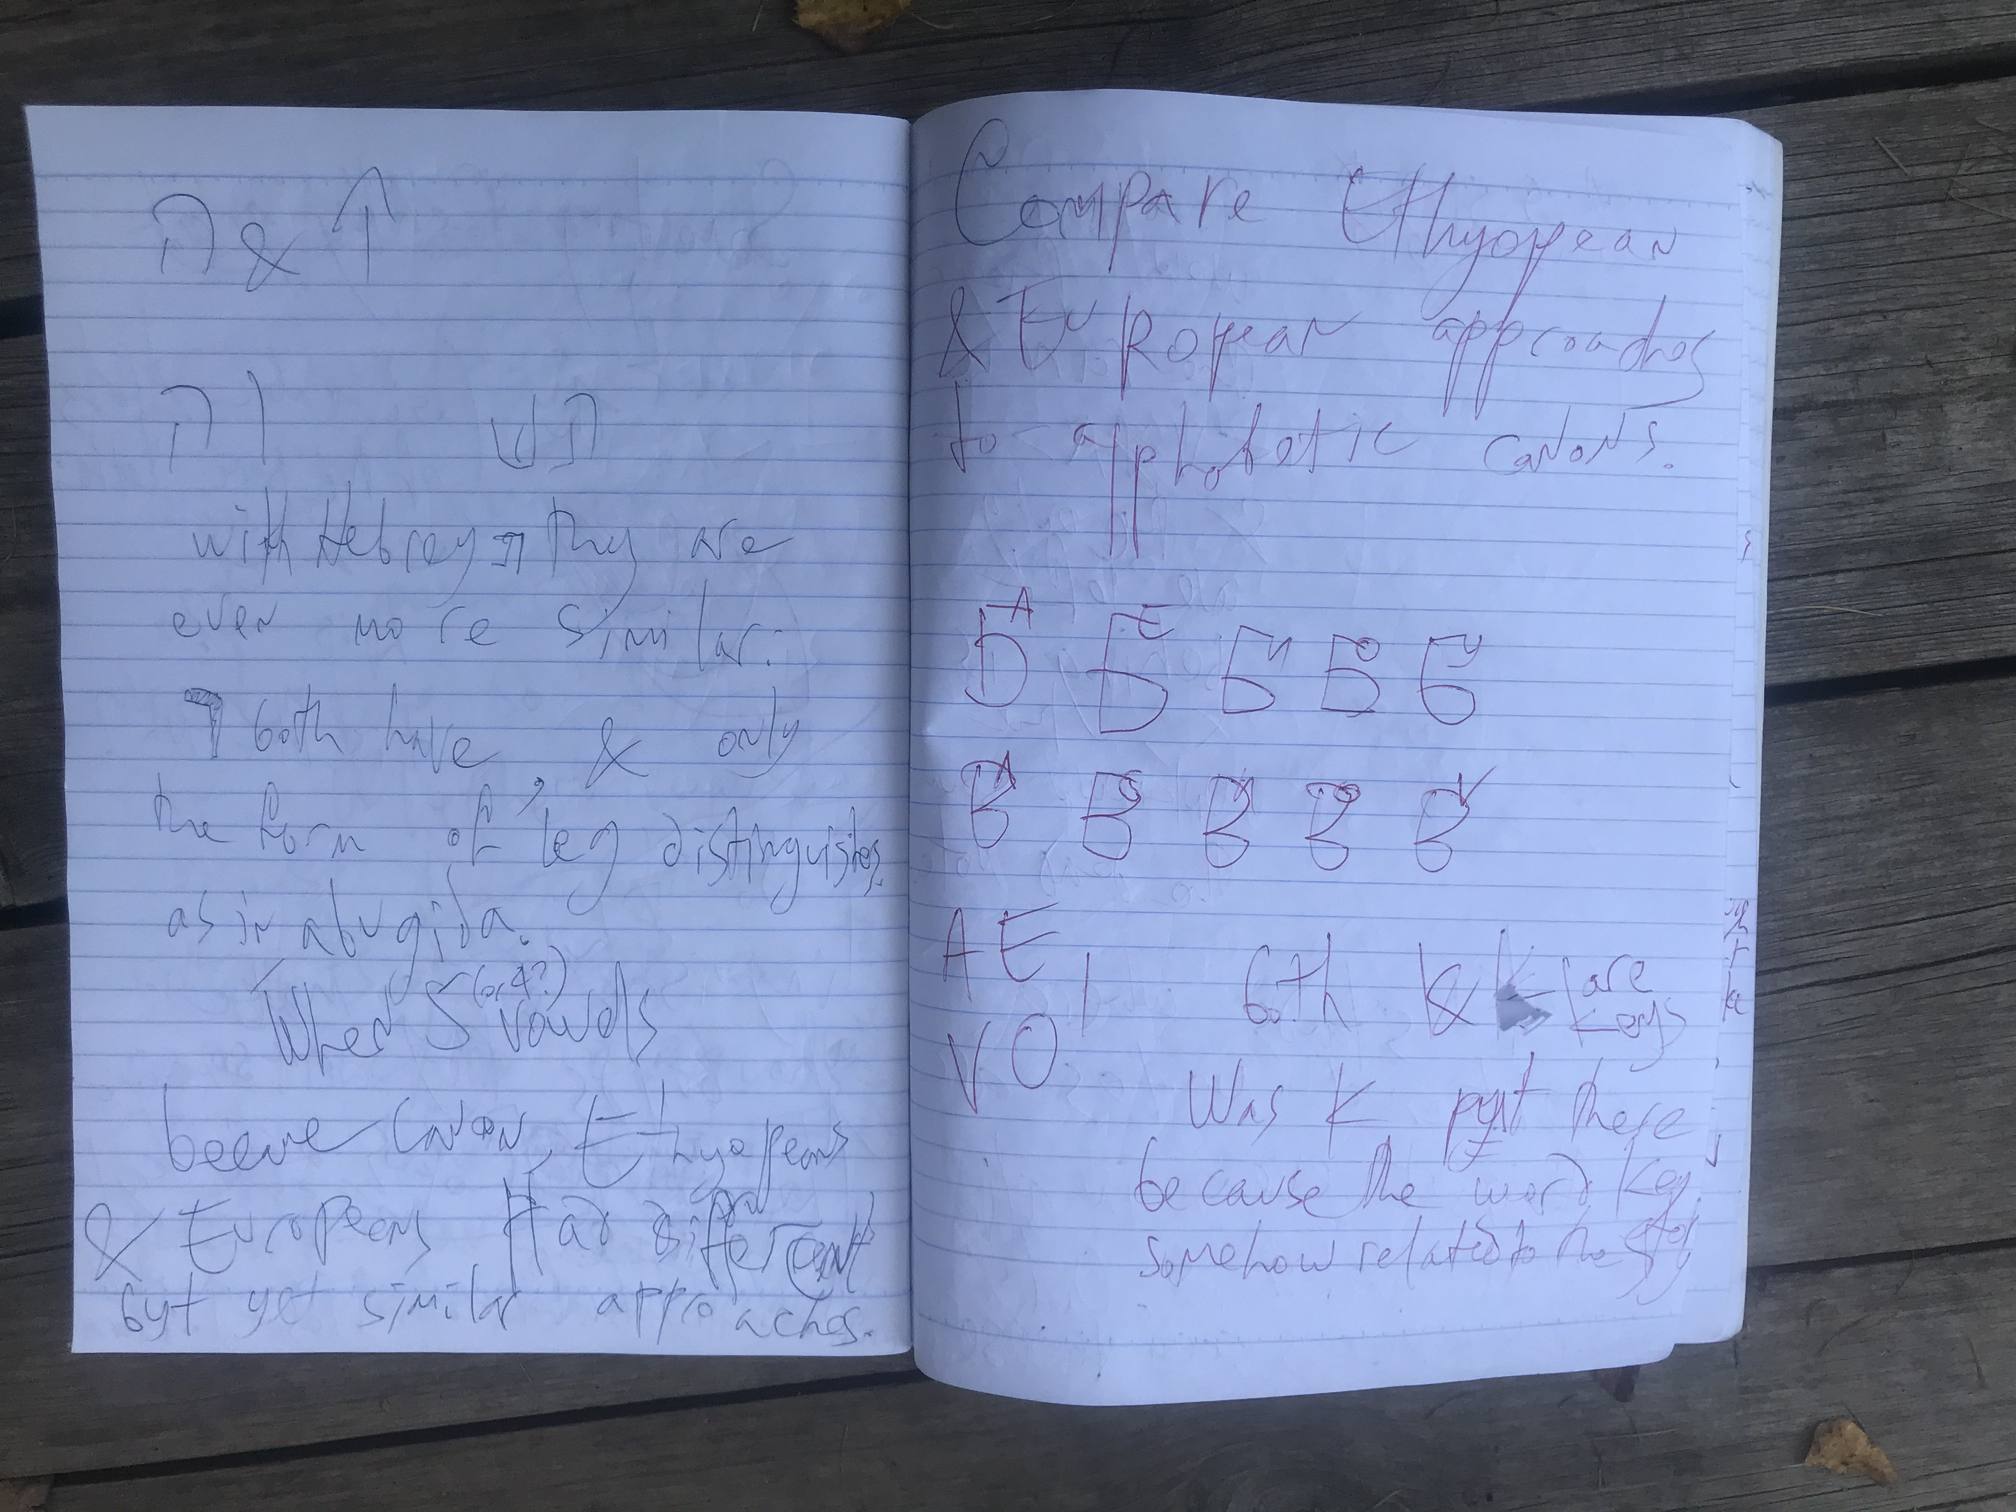 ה & ↑
ה ו ש ת
with Hebrey ה they are
even more similar:
ㄱ both have & only
the form of leg distinguishes
as in abugida.
When 5 (or 4?) vowels
became canon, Ethyopeans
& Europeans Had different
byt yet similar approaches.
Compare Ethyopean
& European approaches
to canons.
A E I
V O
both K & K are
keys
Was K pyt there
because the word key
somehow related to the